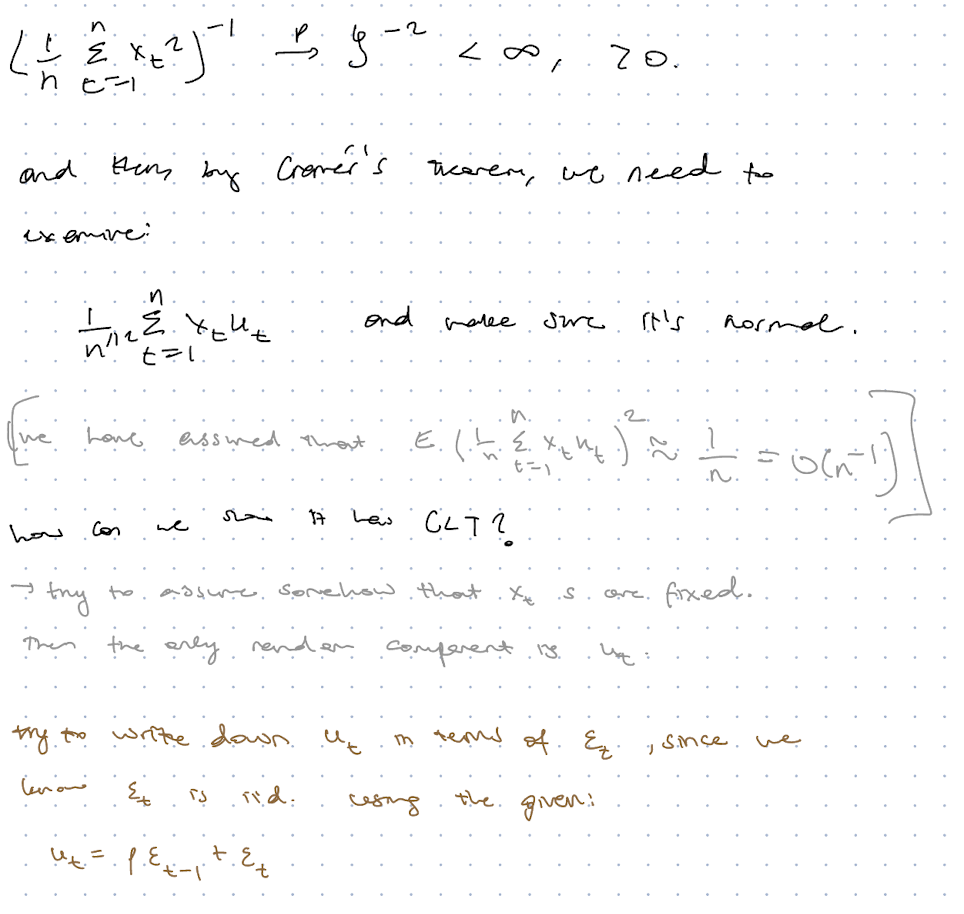 (1/n Σ_{t=1}^{n} x_t²)^{-1} →^p ξ^{-2} < ∞, > 0.
and then, by Cramér's theorem, we need to
examine:
1/n^{1/2} Σ_{t=1}^{n} x_t u_t and make sure it's normal.
[we have assumed that E (1/n Σ_{t=1}^{n} x_t u_t)² ≈ 1/n = O(n^{-1})]
how can we show it has CLT?
→ try to assume somehow that x_t s are fixed.
Then the only random component is u_t.
try to write down u_t in terms of ε_t, since we
know ε_t is iid. using the given:
u_t = ρ ε_{t-1} + ε_t